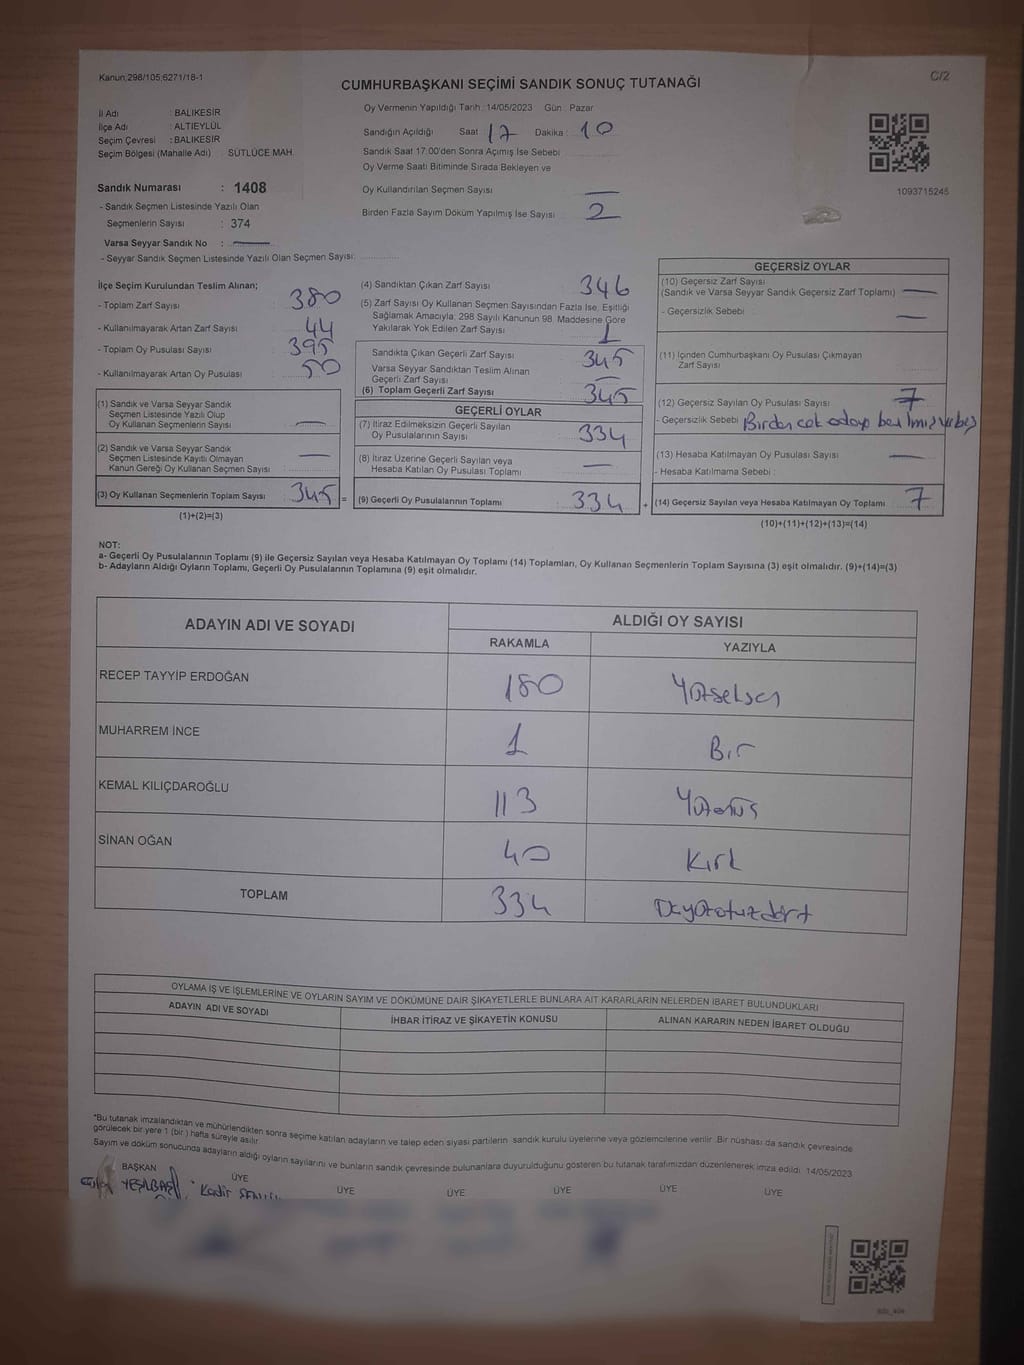 Kanun;298/105,6271/18-1
C/2
CUMHURBAŞKANI SEÇİMİ SANDIK SONUÇ TUTANAĞI
İl Adı : BALIKESİR
İlçe Adı : ALTIEYLÜL
Seçim Çevresi : BALIKESİR
Seçim Bölgesi (Mahalle Adı) SÜTLÜCE MAH.
Sandık Numarası : 1408
- Sandık Seçmen Listesinde Yazılı Olan
Seçmenlerin Sayısı : 374
Varsa Seyyar Sandık No :
- Seyyar Sandık Seçmen Listesinde Yazılı Olan Seçmen Sayısı:
Oy Vermenin Yapıldığı Tarih : 14/05/2023 Gün : Pazar
Sandığın Açıldığı Saat 17 Dakika : 10
Sandık Saat 17:00'den Sonra Açımış İse Sebebi
Oy Verme Saati Bitiminde Sırada Bekleyen ve
Oy Kullandırılan Seçmen Sayısı —
Birden Fazla Sayım Döküm Yapılmış İse Sayısı 2
1093715245
İlçe Seçim Kurulundan Teslim Alınan;
- Toplam Zarf Sayısı 380
- Kullanılmayarak Artan Zarf Sayısı 44
- Toplam Oy Pusulası Sayısı 395
- Kullanılmayarak Artan Oy Pusulası 50
(1) Sandık ve Varsa Seyyar Sandık
Seçmen Listesinde Yazılı Olup
Oy Kullanan Seçmenlerin Sayısı —
(2) Sandık ve Varsa Seyyar Sandık
Seçmen Listesinde Kayıtlı Olmayan
Kanun Gereği Oy Kullanan Seçmen Sayısı —
(3) Oy Kullanan Seçmenlerin Toplam Sayısı 345 =
(1)+(2)=(3)
(4) Sandıktan Çıkan Zarf Sayısı 346
(5) Zarf Sayısı Oy Kullanan Seçmen Sayısından Fazla İse, Eşitliği
Sağlamak Amacıyla; 298 Sayılı Kanunun 98. Maddesine Göre
Yakılarak Yok Edilen Zarf Sayısı 1
Sandıkta Çıkan Geçerli Zarf Sayısı 345
Varsa Seyyar Sandıktan Teslim Alınan
Geçerli Zarf Sayısı —
(6) Toplam Geçerli Zarf Sayısı 345
GEÇERLİ OYLAR
(7) İtiraz Edilmeksizin Geçerli Sayılan
Oy Pusulalarının Sayısı 334
(8) İtiraz Üzerine Geçerli Sayılan veya
Hesaba Katılan Oy Pusulası Toplamı —
(9) Geçerli Oy Pusulalarının Toplamı 334 +
GEÇERSİZ OYLAR
(10) Geçersiz Zarf Sayısı
(Sandık ve Varsa Seyyar Sandık Geçersiz Zarf Toplamı) —
- Geçersizlik Sebebi —
(11) İçinden Cumhurbaşkanı Oy Pusulası Çıkmayan
Zarf Sayısı
(12) Geçersiz Sayılan Oy Pusulası Sayısı 7
- Geçersizlik Sebebi Birden çok adaya
(13) Hesaba Katılmayan Oy Pusulası Sayısı —
- Hesaba Katılmama Sebebi :
(14) Geçersiz Sayılan veya Hesaba Katılmayan Oy Toplamı 7
(10)+(11)+(12)+(13)=(14)
NOT:
a- Geçerli Oy Pusulalarının Toplamı (9) ile Geçersiz Sayılan veya Hesaba Katılmayan Oy Toplamı (14) Toplamları, Oy Kullanan Seçmenlerin Toplam Sayısına (3) eşit olmalıdır. (9)+(14)=(3)
b- Adayların Aldığı Oyların Toplamı, Geçerli Oy Pusulalarının Toplamına (9) eşit olmalıdır.
ADAYIN ADI VE SOYADI
ALDIĞI OY SAYISI
RAKAMLA YAZIYLA
RECEP TAYYİP ERDOĞAN 180 Yüzseksen
MUHARREM İNCE 1 Bir
KEMAL KILIÇDAROĞLU 113 Yüzonüç
SİNAN OĞAN 40 Kırk
TOPLAM 334 Üçyüzotuzdört
OYLAMA İŞ VE İŞLEMLERİNE VE OYLARIN SAYIM VE DÖKÜMÜNE DAİR ŞİKAYETLERLE BUNLARA AİT KARARLARIN NELERDEN İBARET BULUNDUKLARI
ADAYIN ADI VE SOYADI İHBAR İTİRAZ VE ŞİKAYETİN KONUSU ALINAN KARARIN NEDEN İBARET OLDUĞU
*Bu tutanak imzalandıktan ve mühürlendikten sonra seçime katılan adayların ve talep eden siyasi partilerin sandık kurulu üyelerine veya gözlemcilerine verilir. Bir nüshası da sandık çevresinde
görülecek bir yere 1 (bir) hafta süreyle asılır.
Sayım ve döküm sonucunda adayların aldığı oyların sayılarını ve bunların sandık çevresinde bulunanlara duyurulduğunu gösteren bu tutanak tarafımızdan düzenlenerek imza edildi. 14/05/2023
BAŞKAN ÜYE ÜYE ÜYE ÜYE ÜYE ÜYE
YEŞİLBAŞ Kadir